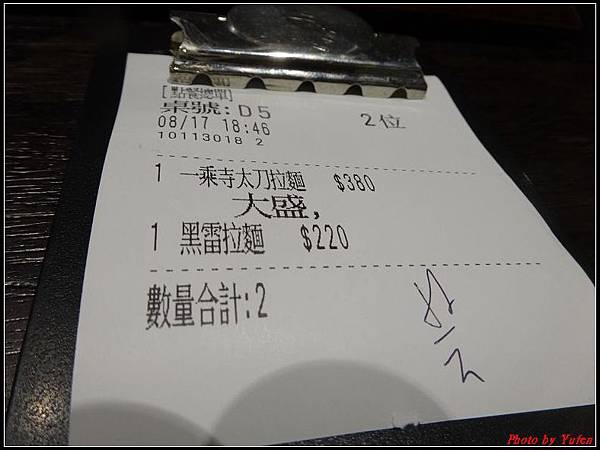 [點餐總單]
桌號:D5
2位
08/17 18:46
10113018 2
1 一乘寺太刀拉麵 $380
大盛,
1 黑雷拉麵 $220
數量合計:2
Photo by Yufen